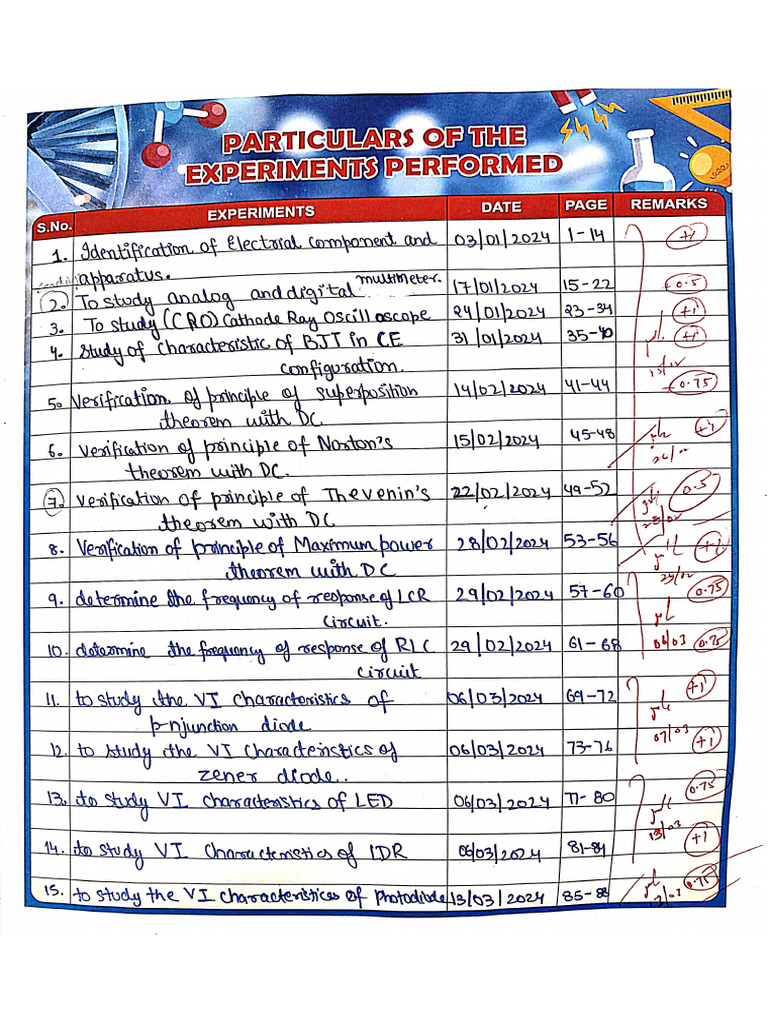 PARTICULARS OF THE
EXPERIMENTS PERFORMED
S.No. EXPERIMENTS DATE PAGE REMARKS
1. Identification of Electrial component and 03/01/2024 1-14 +1
apparatus.
2. To study analog and digital multimeter. 17/01/2024 15-22 +0.5
3. To study (CRO) Cathode Ray Oscilloscope 24/01/2024 23-34 +1
4. Study of characteristic of BJT in CE 31/01/2024 35-40 +1
configuration.
5. Verification of principle of superposition 14/02/2024 41-44 0.75
theorem with DC.
6. Verification of principle of Norton's 15/02/2024 45-48 +1
theorem with DC.
7. Verification of principle of Thevenin's 22/02/2024 49-52 0.5
theorem with DC
8. Verification of principle of Maximum power 28/02/2024 53-56 +1
theorem with DC
9. determine the frequency of response of LCR 29/02/2024 57-60 0.75
circuit.
10. determine the frequency of response of RLC 29/02/2024 61-68 06/03 0.75
circuit
11. to study the VI characteristics of 06/03/2024 69-72 +1
p-njunction diode 07/03
12. to study the VI characteristics of 06/03/2024 73-76 +1
zener diode.
13. to study VI characteristics of LED 06/03/2024 77-80 0.75
13/03
14. to study VI characteristics of LDR 06/03/2024 81-84 +1
15. to study the VI characteristices of Photodiode 13/03/2024 85-88 0.75